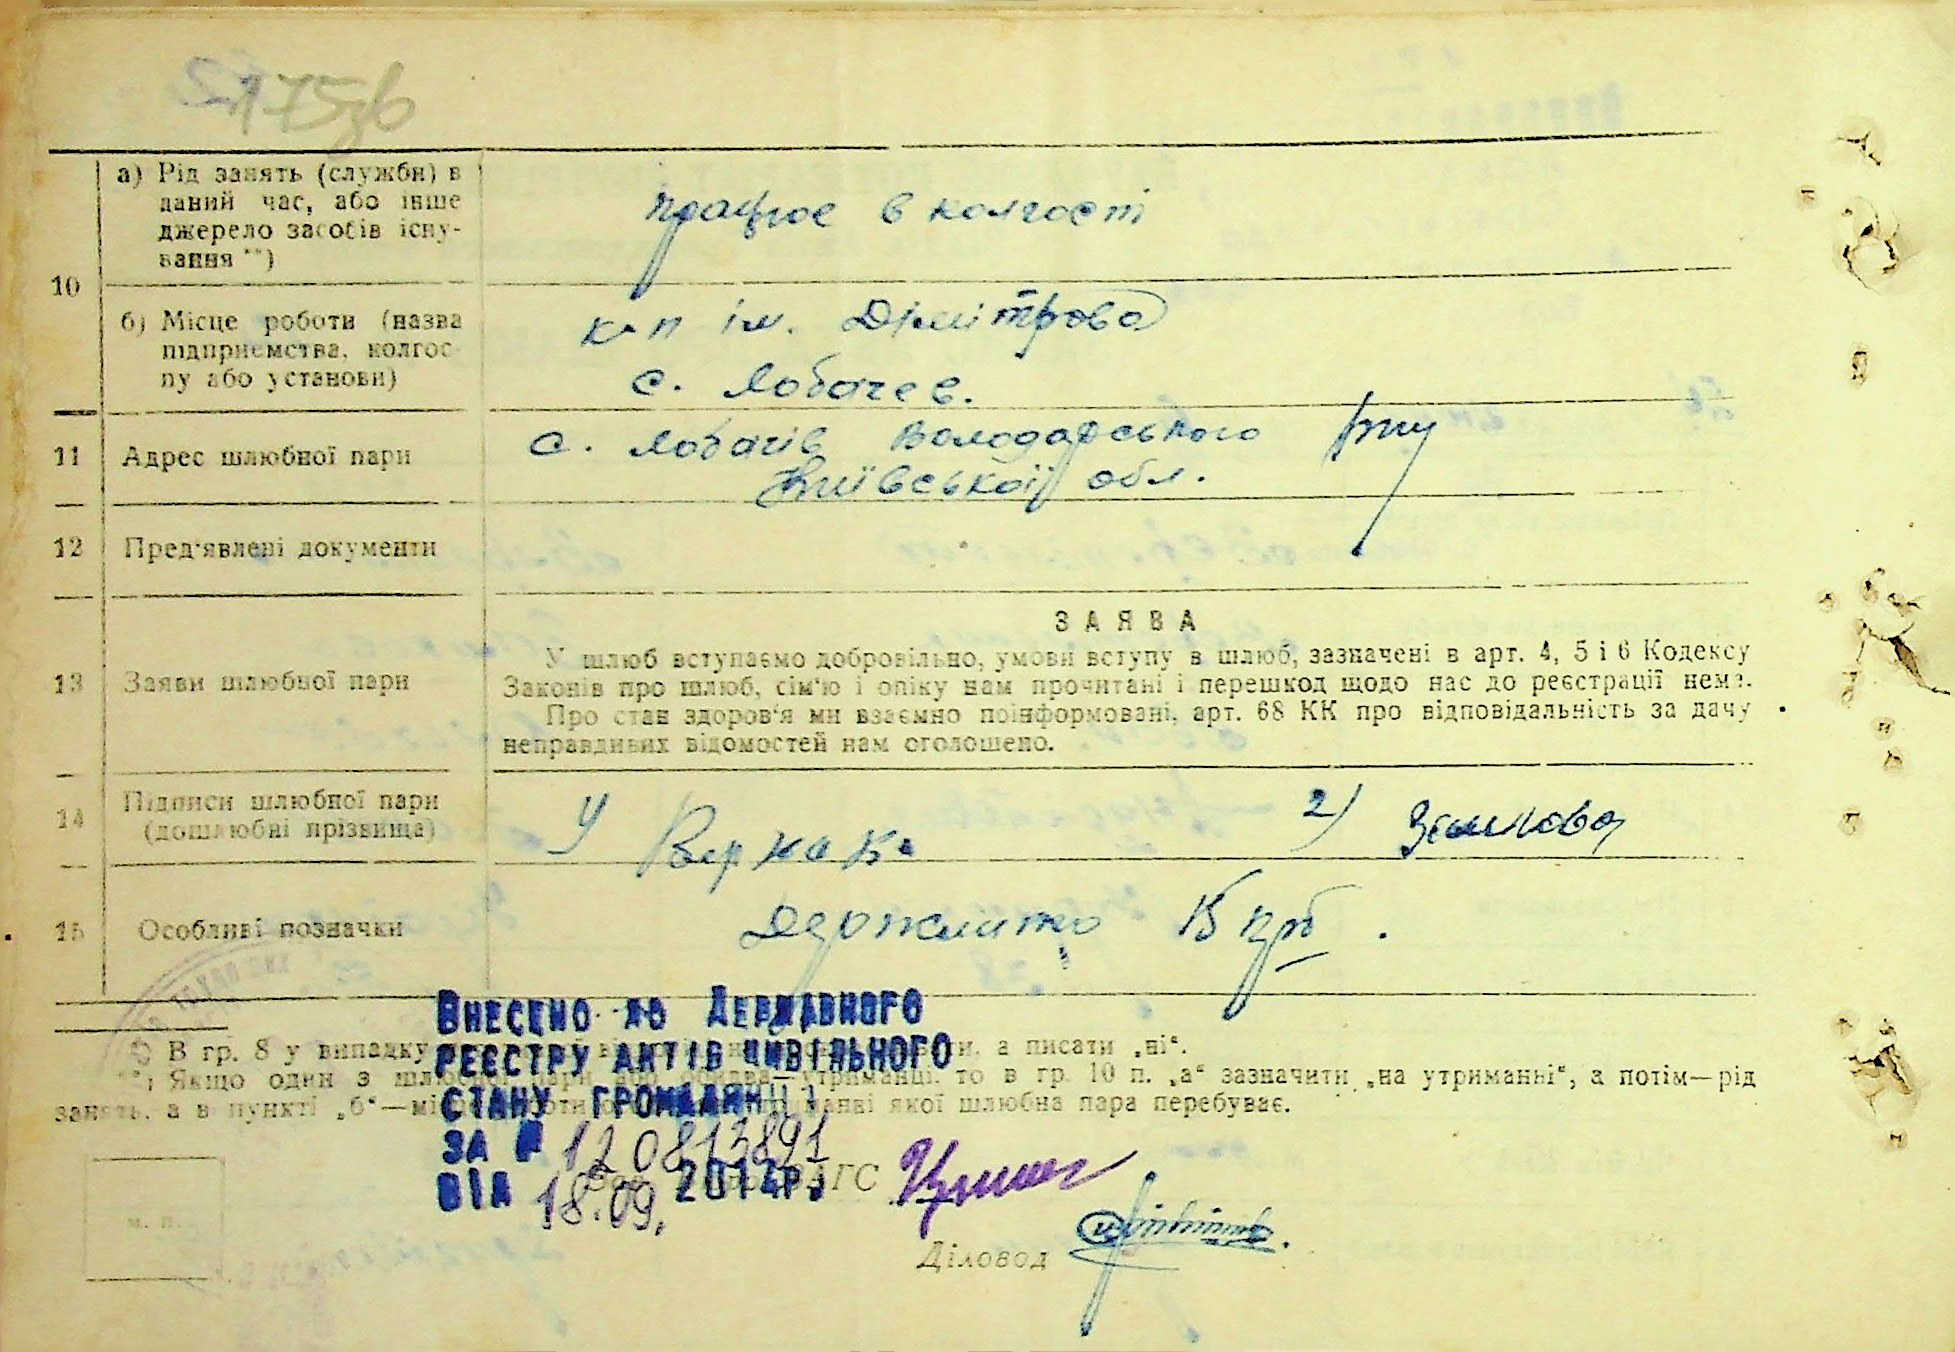 175зв
а) Рід занять (служби) в
даний час, або інше
джерело засобів існу-
вання **)
працює в колгості
10
б) Місце роботи (назва
підприємства, колгос-
пу або установи)
к-п ім. Дімітрова
с. Лобачев.
11 Адрес шлюбної пари
с. Лобачів Володарського р-ну
Київської обл.
12 Пред'явлені документи
13 Заяви шлюбної пари
ЗАЯВА
У шлюб вступаємо добровільно, умови вступу в шлюб, зазначені в арт. 4, 5 і 6 Кодексу
Законів про шлюб, сім'ю і опіку нам прочитані і перешкод щодо нас до реєстрації нема.
Про стан здоров'я ми взаємно поінформовані, арт. 68 КК про відповідальність за дачу
неправдивих відомостей нам оголошено.
14 Підписи шлюбної пари
(дошлюбні прізвища)
2)
15 Особливі позначки
Держмито 15 крб.
ВНЕСЕНО ДО ДЕРЖАВНОГО
РЕЄСТРУ АКТІВ ЦИВІЛЬНОГО
СТАНУ ГРОМАДЯН
ЗА № 120813891
ВІД 18.09. 2012р.
*) В гр. 8 у випадку а писати „ні“.
**) Якщо один з шлюбної пари утриманці, то в гр. 10 п. „а“ зазначити „на утриманні“, а потім—рід
занять, а в пункті „б“—місце роботи якої шлюбна пара перебуває.
ЗАГС
Діловод
м. п.